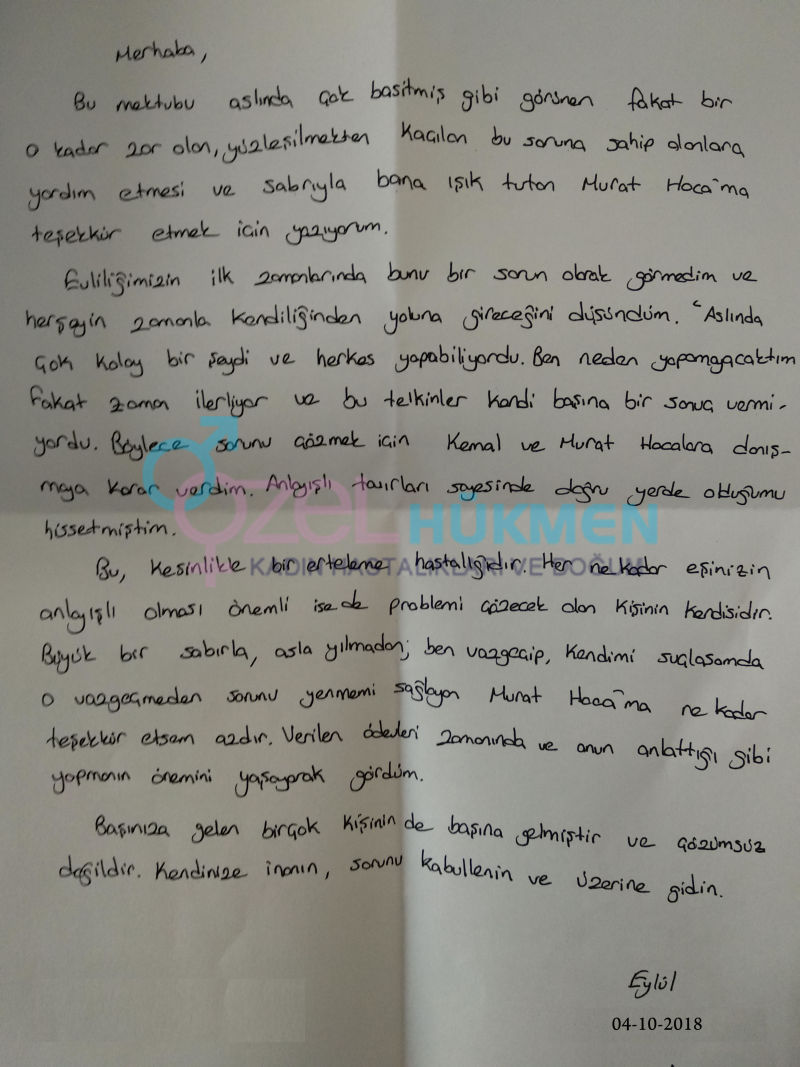 Merhaba,
Bu mektubu aslında çok basitmiş gibi görünen fakat bir
o kadar zor olan, yüzleşilmekten kaçılan bu soruna sahip olanlara
yardım etmesi ve sabrıyla bana ışık tutan Murat Hoca'ma
teşekkür etmek için yazıyorum.
Evliliğimizin ilk zamanlarında bunu bir sorun olarak görmedim ve
herşeyin zamanla kendiliğinden yoluna gireceğini düşündüm. "Aslında
çok kolay bir şeydi ve herkes yapabiliyordu. Ben neden yapamayacaktım
fakat zaman ilerliyor ve bu telkinler kendi başına bir sonuç vermi-
yordu. Böylece sorunu çözmek için Kemal ve Murat Hocalara danış-
maya karar verdim. Anlayışlı tavırları sayesinde doğru yerde olduğumu
hissetmiştim.
ÖZEL HÜKMEN
KADIN HASTALIKLARI VE DOĞUM
Bu, kesinlikle bir erteleme hastalığıdır. Her ne kadar eşinizin
anlayışlı olması önemli isede problemi çözecek olan kişinin kendisidir.
Büyük bir sabırla, asla yılmadan; ben vazgeçip, kendimi suçlasamda
o vazgeçmeden sorunu yenmemi sağlayan Murat Hoca'ma ne kadar
teşekkür etsem azdır. Verilen ödevleri zamanında ve onun anlattığı gibi
yapmanın önemini yaşayarak gördüm.
Başınıza gelen birçok kişinin de başına gelmiştir ve çözümsüz
değildir. Kendinize inanın, sorunu kabullenin ve üzerine gidin.
Eylül
04-10-2018